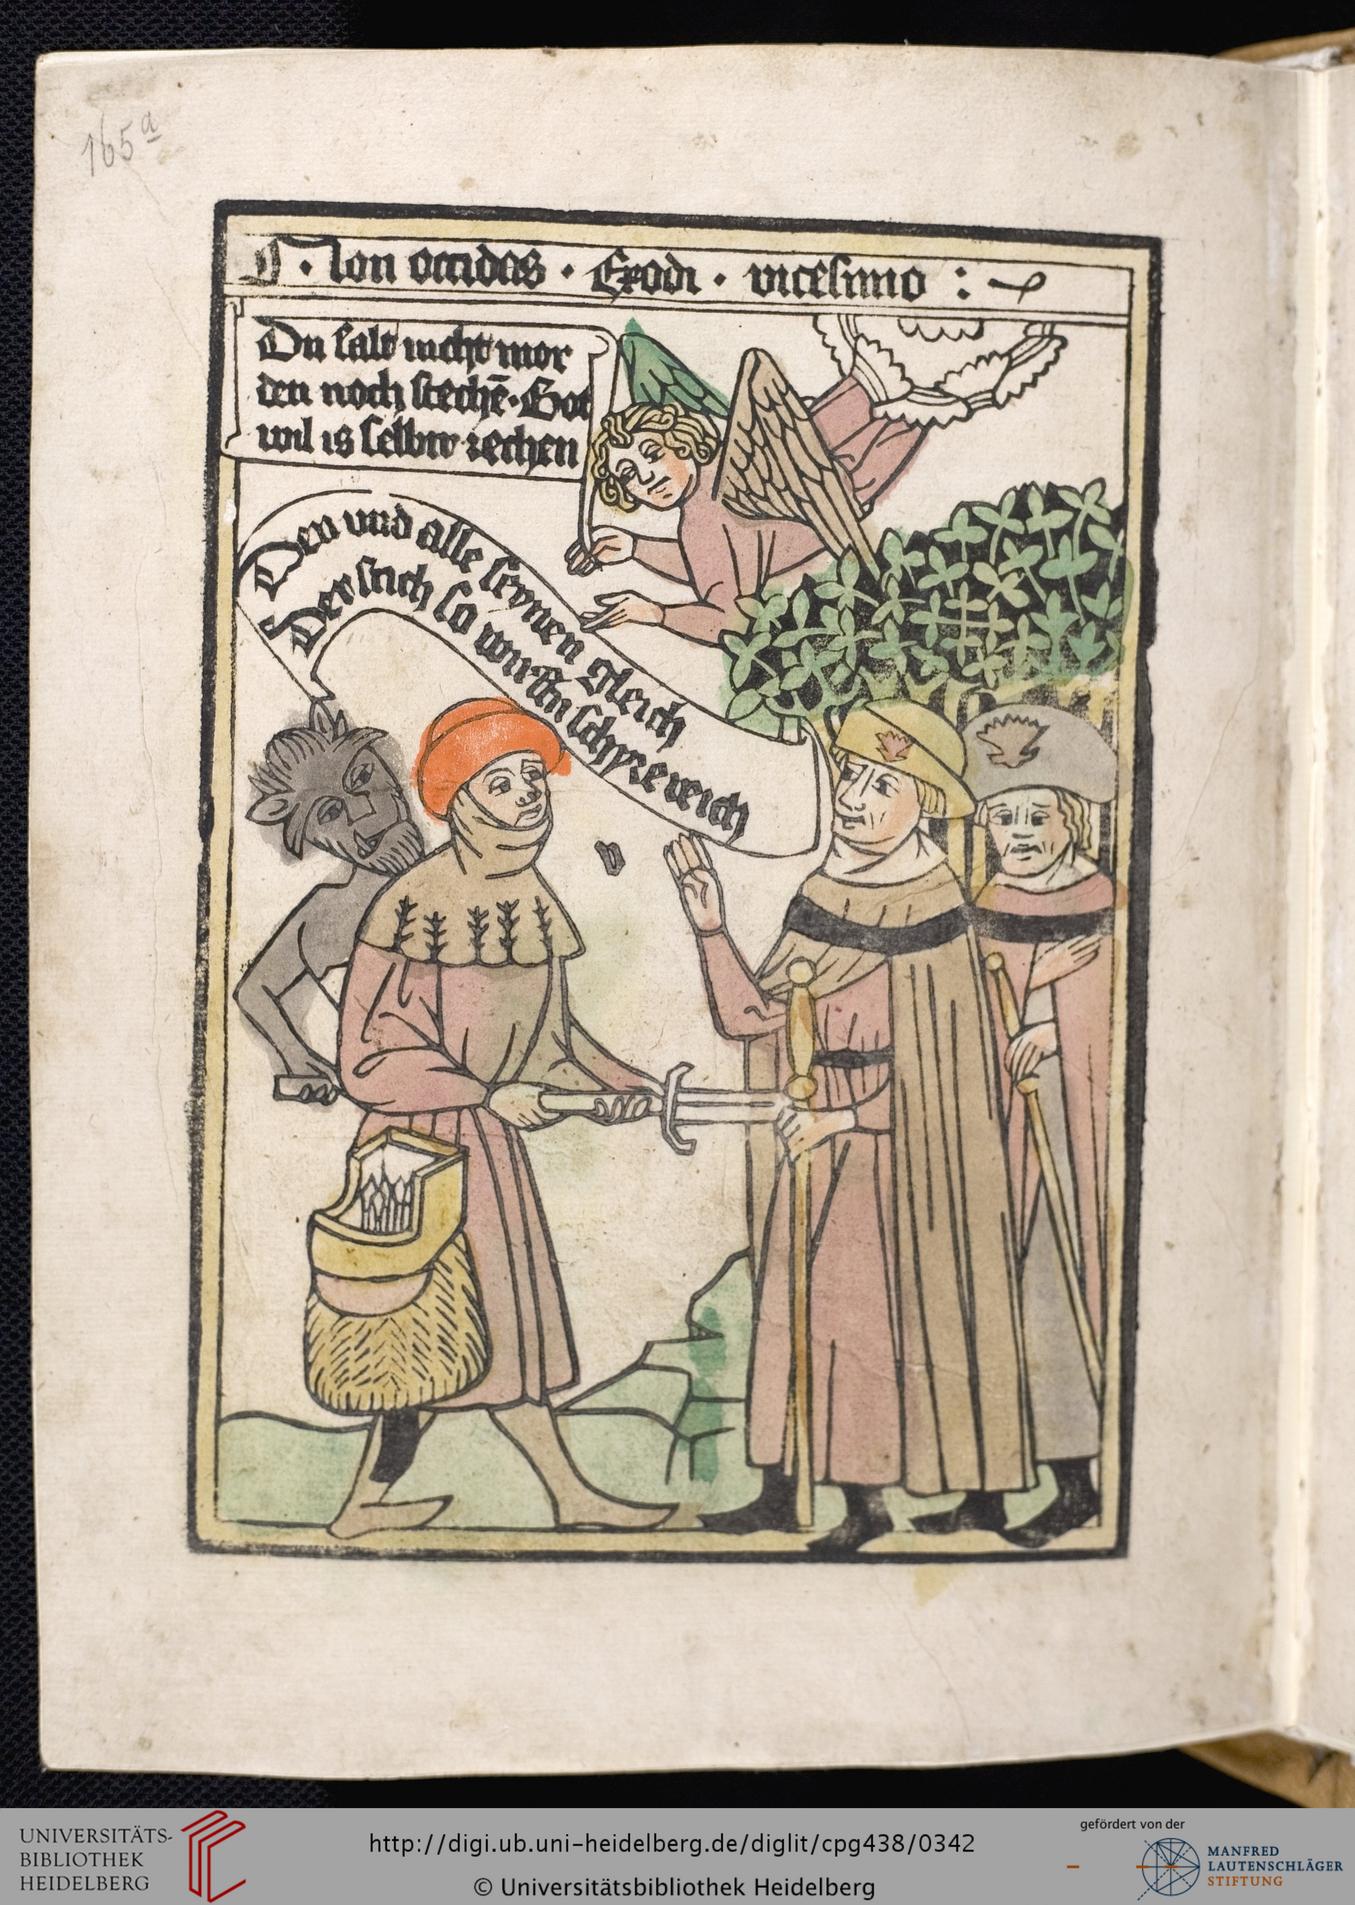 165a
Non occidas · Exodi · vicesimo :
Du salt nicht mor
den noch stechē · Got
wil is selber rechen
Den vnd alle seynen gleich
Der stich so wirstu schyre reich
v
UNIVERSITÄTS-
BIBLIOTHEK
HEIDELBERG
http://digi.ub.uni-heidelberg.de/diglit/cpg438/0342
© Universitätsbibliothek Heidelberg
gefördert von der
MANFRED
LAUTENSCHLÄGER
STIFTUNG